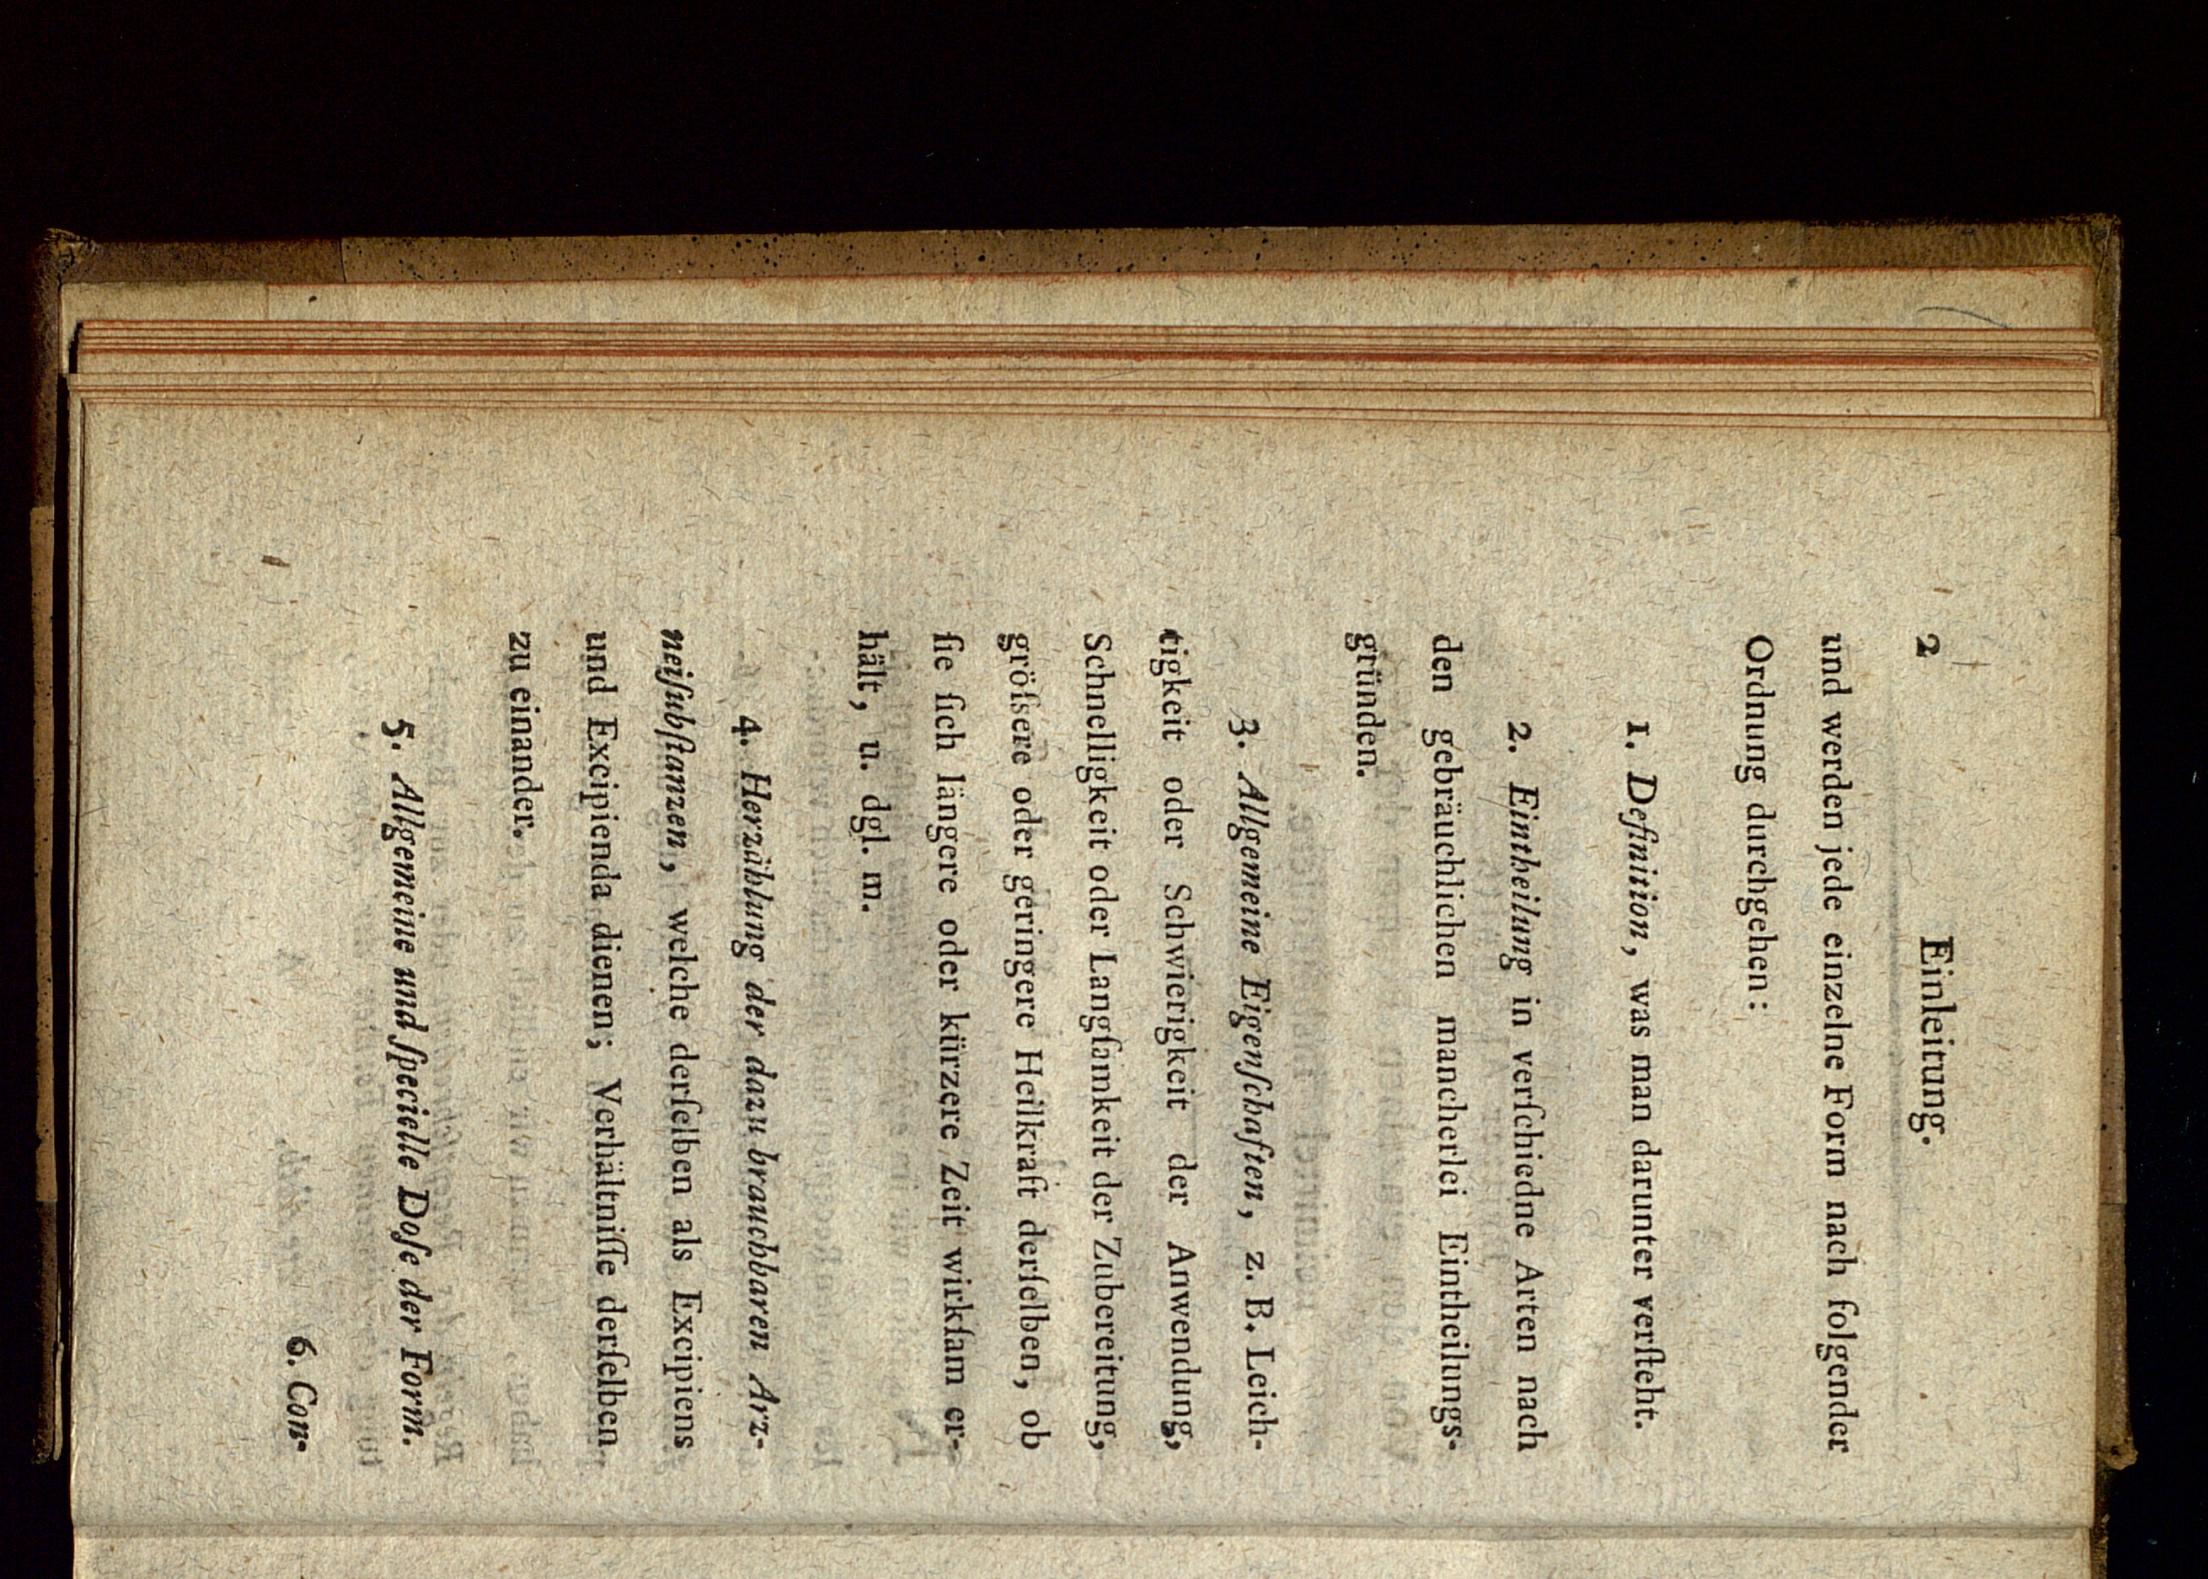 2 Einleitung.
und werden jede einzelne Form nach folgender
Ordnung durchgehen:
1. Definition, was man darunter verſteht.
2. Eintheilung in verſchiedne Arten nach
den gebräuchlichen mancherlei Eintheilungs-
gründen.
3. Allgemeine Eigenſchaften, z. B. Leich-
tigkeit oder Schwierigkeit der Anwendung,
Schnelligkeit oder Langſamkeit der Zubereitung,
gröſsere oder geringere Heilkraft derſelben, ob
ſie ſich längere oder kürzere Zeit wirkſam er-
hält, u. dgl. m.
4. Herzählung der dazu brauchbaren Arz-
neiſubſtanzen, welche derſelben als Excipiens
und Excipienda dienen; Verhältniſſe derſelben
zu einander.
5. Allgemeine und ſpecielle Doſe der Form.
6. Con-